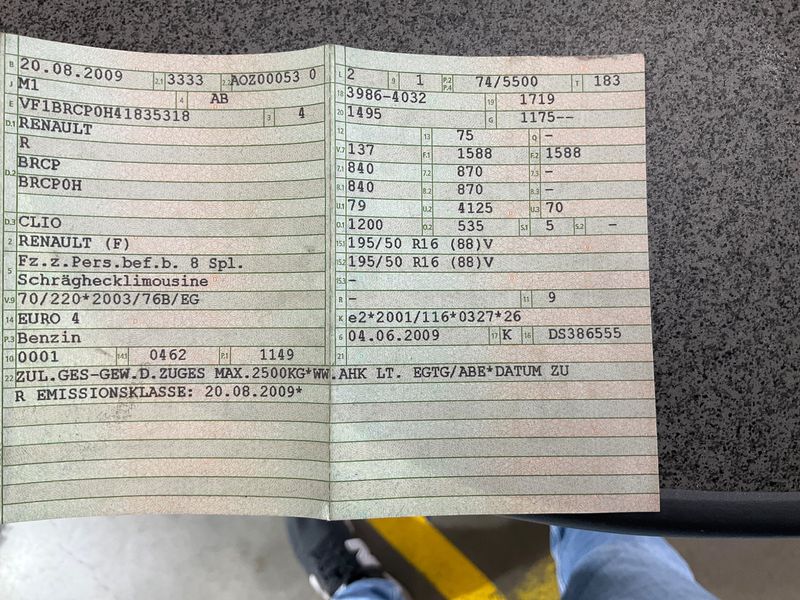 B 20.08.2009 2.1 3333 2.2 AOZ00053 0
J M1 4 AB
E VF1BRCP0H41835318 3 4
D.1 RENAULT
R
D.2 BRCP
BRCP0H
D.3 CLIO
2 RENAULT (F)
5 Fz.z.Pers.bef.b. 8 Spl.
Schräghecklimousine
V.9 70/220*2003/76B/EG
14 EURO 4
P.3 Benzin
10 0001 14.1 0462 P.1 1149
L 2 9 1 P.2 P.4 74/5500 T 183
18 3986-4032 19 1719
20 1495 G 1175--
12 13 75 Q -
V.7 137 F.1 1588 F.2 1588
7.1 840 7.2 870 7.3 -
8.1 840 8.2 870 8.3 -
U.1 79 U.2 4125 U.3 70
O.1 1200 O.2 535 S.1 5 S.2 -
15.1 195/50 R16 (88)V
15.2 195/50 R16 (88)V
15.3 -
R - 11 9
K e2*2001/116*0327*26
6 04.06.2009 17 K 16 DS386555
21
22 ZUL.GES-GEW.D.ZUGES MAX.2500KG*WW.AHK LT. EGTG/ABE*DATUM ZU
R EMISSIONSKLASSE: 20.08.2009*